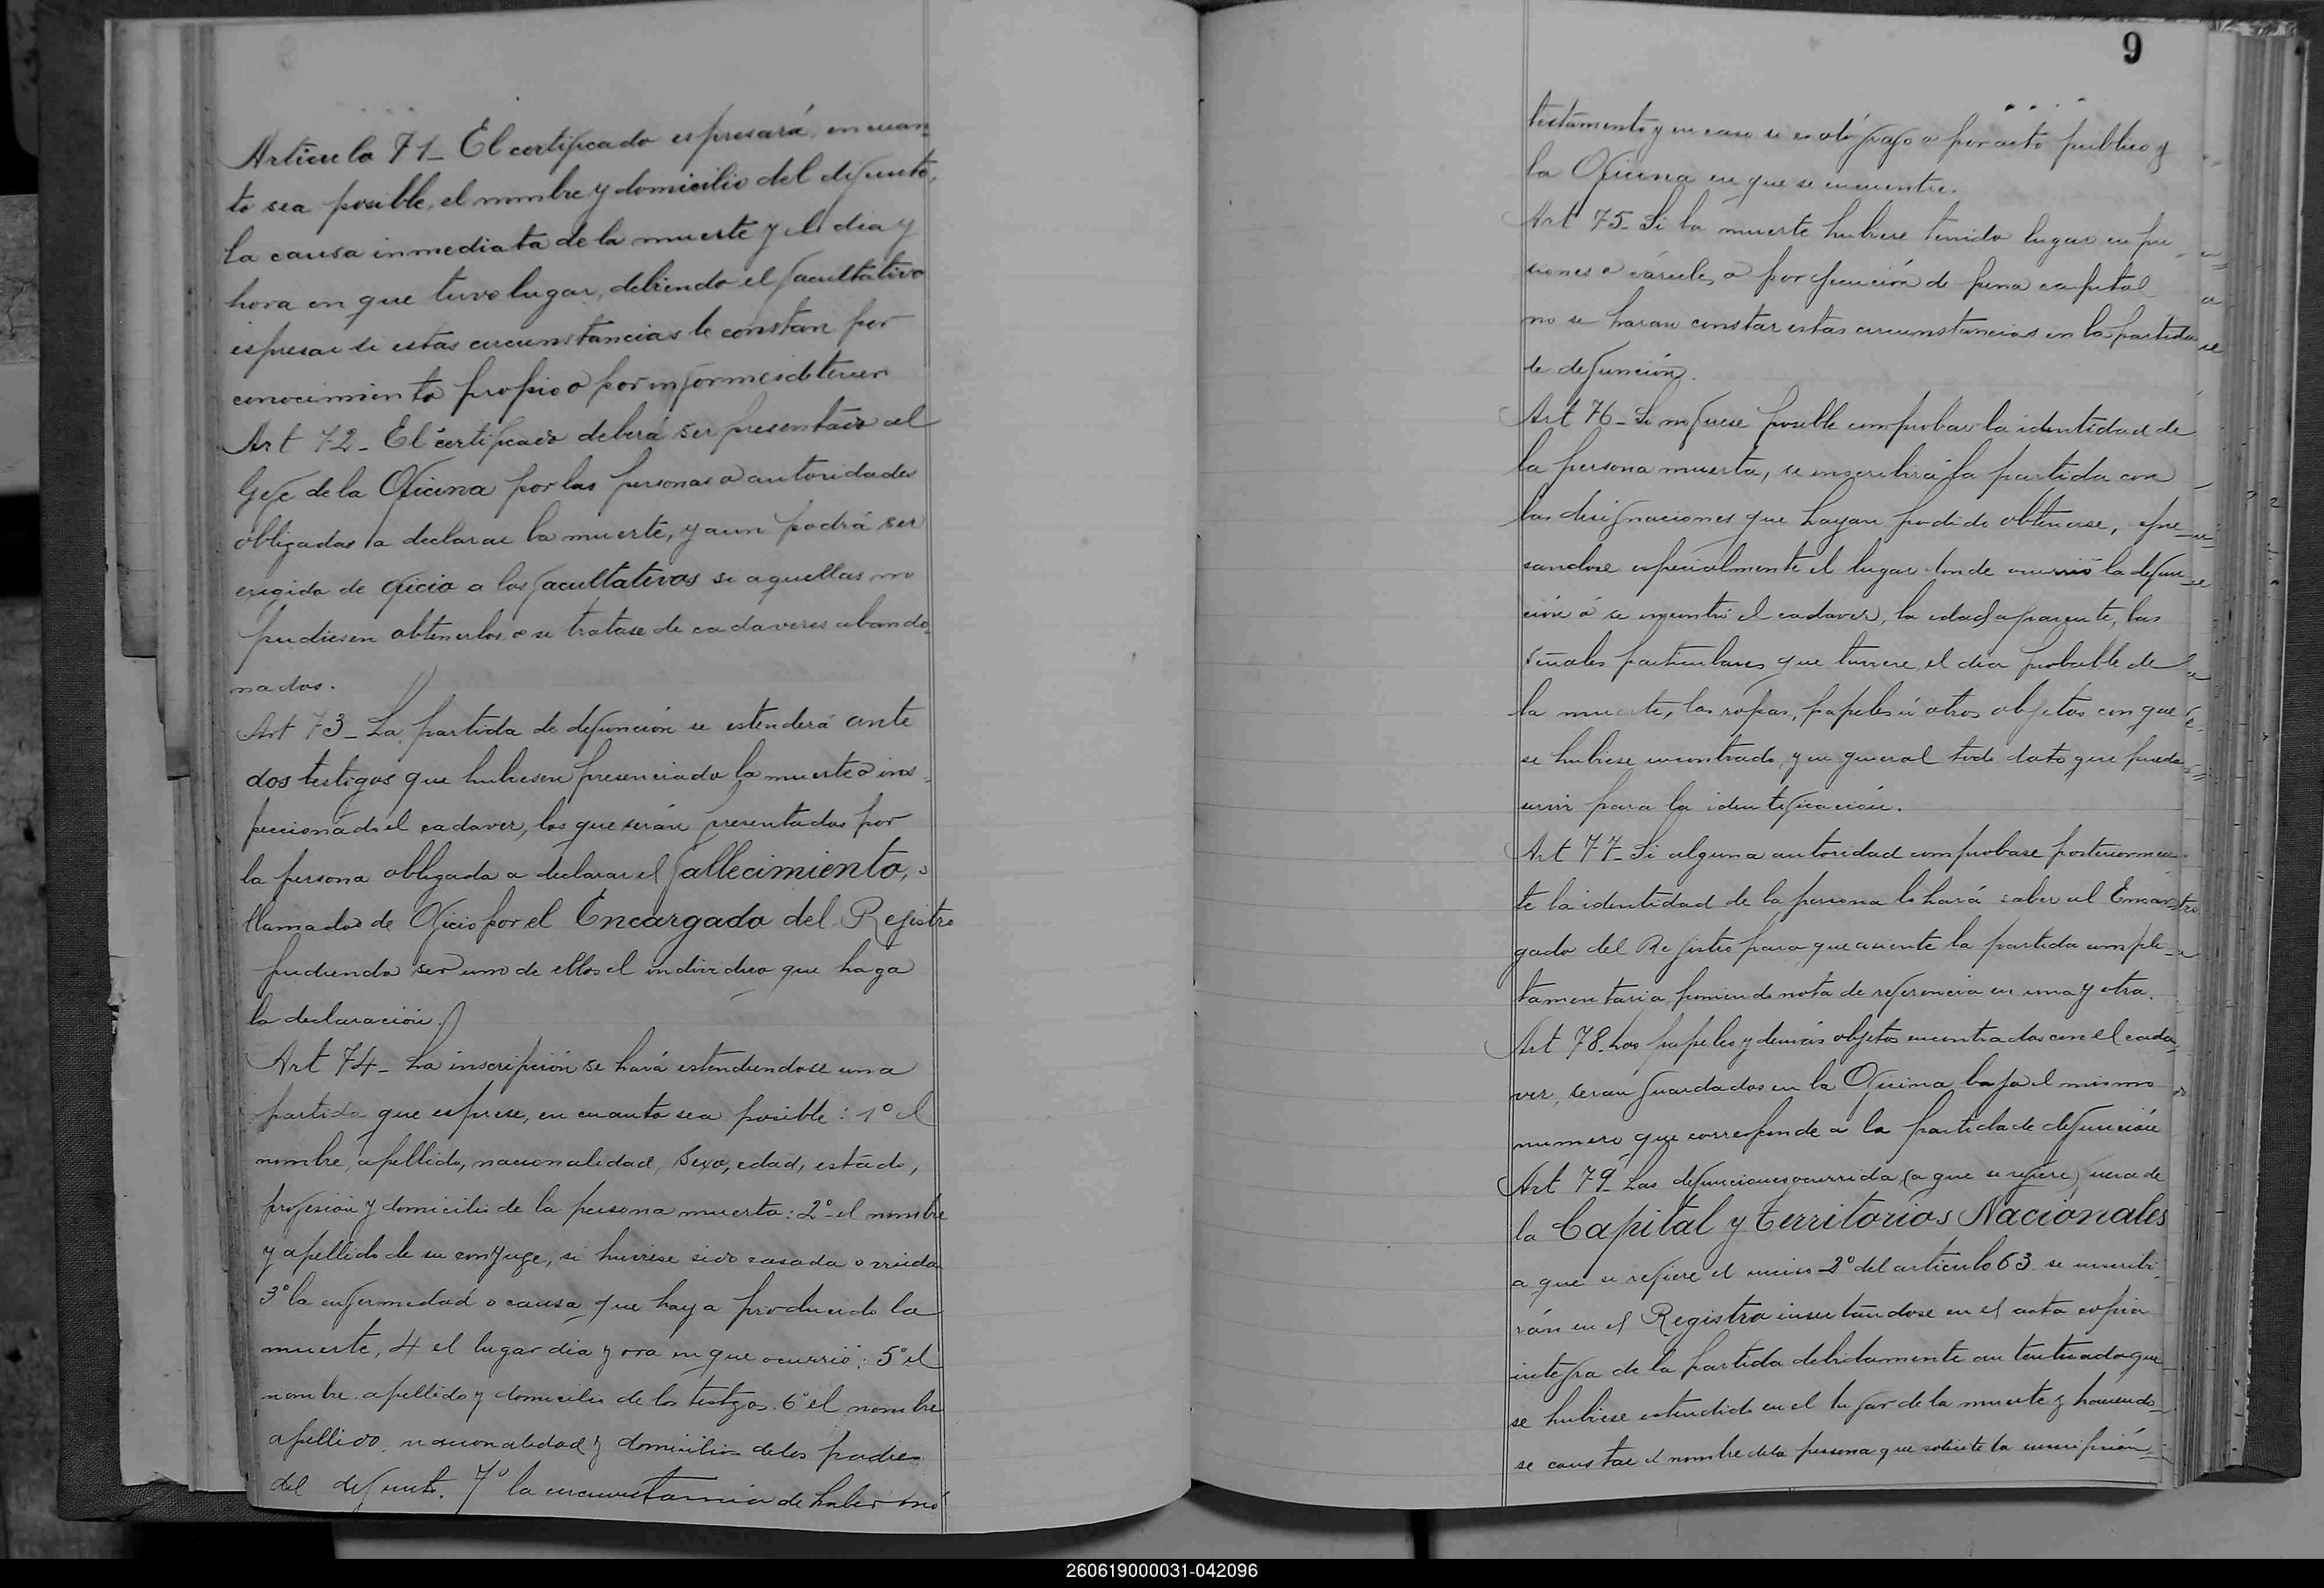 Articulo 71_ El certificado espresará, en cuan
to sea posible, el nombre y domicilio del difunto,
la causa inmediata de la muerte y el dia y
hora en que tuvo lugar, debiendo el facultativo
espresar si estas circunstancias le constan por
conocimiento propio o por informes de tercer
Art 72_ El certificado deberá ser presentado al
Gefe de la Oficina por las personas o autoridades
obligadas a declarar la muerte, y aun podrá ser
exigido de oficio a los facultativos si aquellas no
pudiesen obtenerlos, o se tratase de cadaveres abando-
nados.
Art 73_ La partida de defunción se estenderá ante
dos testigos que hubiesen presenciado la muerte o ins-
peccionado el cadaver, los que serán presentados por
la persona obligada a declarar el fallecimiento, o
llamados de Oficio por el Encargado del Registro
pudiendo ser uno de ellos el individuo que haga
la declaración.
Art 74_ La inscripción se hará estendiendose una
partida que esprese, en cuanto sea posible: 1º el
nombre, apellido, nacionalidad, sexo, edad, estado,
profesión y domicilio de la persona muerta: 2º el nombre
y apellido de su conyuge, si huviese sido casada o viuda
3º la enfermedad o causa que haya producido la
muerte, 4 el lugar dia y ora en que ocurrió: 5º el
nombre apellido y domicilio de los testigos. 6º el nombre
apellido, nacionalidad y domicilio de los padres
del difunto. 7º la circunstancia de haber
9
testamento y en caso si es ológrafo o por acto publico y
la Oficina en que se encuentre.
Art 75_ Si la muerte hubiese tenido lugar en pri
siones o cárceles, o por ejecución de pena capital
no se haran constar estas circunstancias en la partida
de defunción.
Art 76_ Si no fuese posible comprobar la identidad de
la persona muerta, se inscribirá la partida con
las designaciones que hayan podido obtenerse, espre-
sandose especialmente el lugar donde ocurrió la defun-
ción ó se encontró el cadaver, la edad aparente, las
señales particulares que tuviere, el dia probable de
la muerte, las ropas, papeles ú otros objetos con que
se hubiese encontrado, y en general todo dato que pueda
servir para la identificación.
Art 77_ Si alguna autoridad comprobase posteriormen
te la identidad de la persona lo hará saber al Encar-
gado del Registro para que asiente la partida comple-
tamentaria poniendo nota de referencia en una y otra.
Art 78. Los papeles y demás objetos encontrados con el cada-
ver, seran guardados en la Oficina bajo el mismo
numero que corresponde a la partida de defunción
Art 79_ Las defunciones ocurrida (a que se refiere) fuera de
la Capital y Territorios Nacionales
a que se refiere el inciso 2º del articulo 63 se inscribi-
rán en el Registro insertandose en el acta copia
integra de la partida debidamente autenticada que
se hubiese estendido en el lugar de la muerte y haciendo-
se constar el nombre de la persona que solicite la inscripción
260619000031-042096